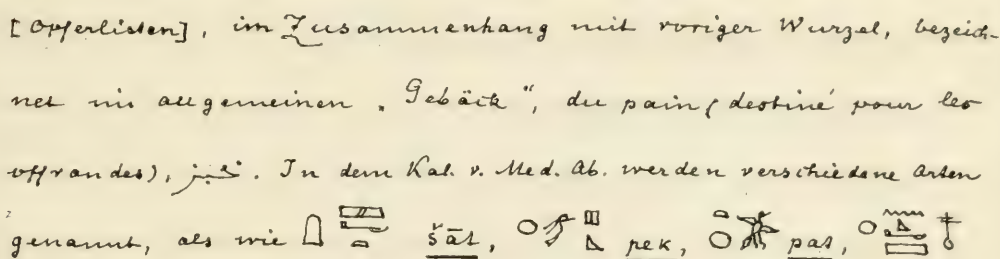 [Opferlisten], im Zusammenhang mit voriger Wurzel, bezeich-
net im allgemeinen „Gebäck“, du pain (destiné pour les
offrandes), خبز. In dem Kal. v. Med. Ab. werden verschiedene Arten
genannt, als wie šāt, pek, pat,